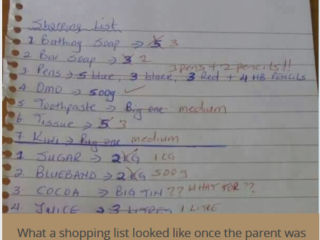 Shopping List
1 Bathing Soap → 5 3
2 Bar Soap → 3 2
3 pens + 2 pencils!!
3 Pens → 5 blue, 3 black, 3 Red + 4 HB PENCILS
4 OMO → 500g ✓
5 Toothpaste → Big one medium
6 Tissue → 5 3
7 Kiwi → Big one medium
1 SUGAR → 2KG 1KG
2 BLUEBAND → 2KG 500g
3 COCOA → BIG TIN?? WHAT FOR??
4 JUICE → 3 1 LITRE
What a shopping list looked like once the parent was